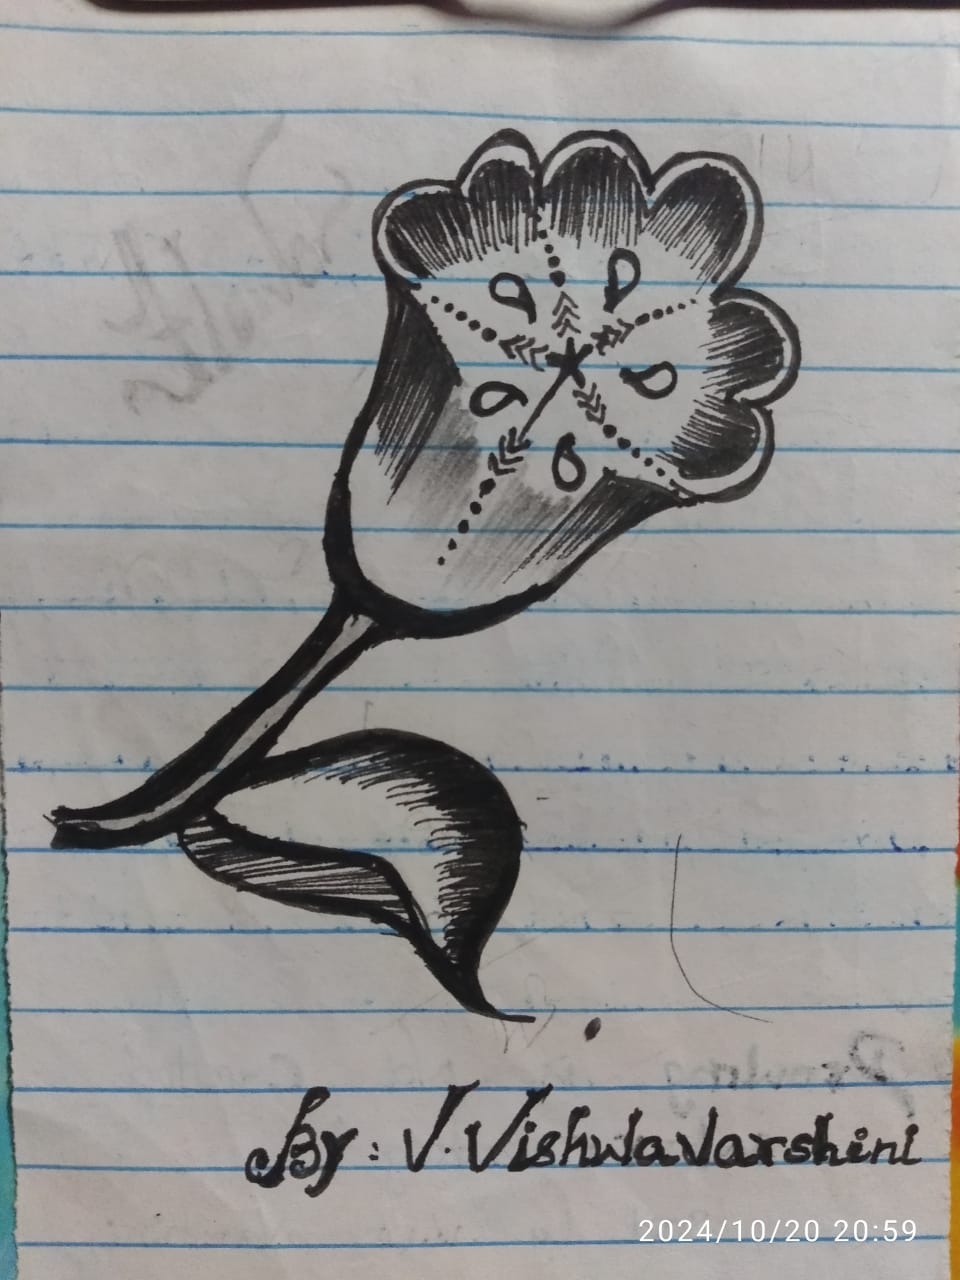 By: V. Vishwavarshini
2024/10/20 20:59